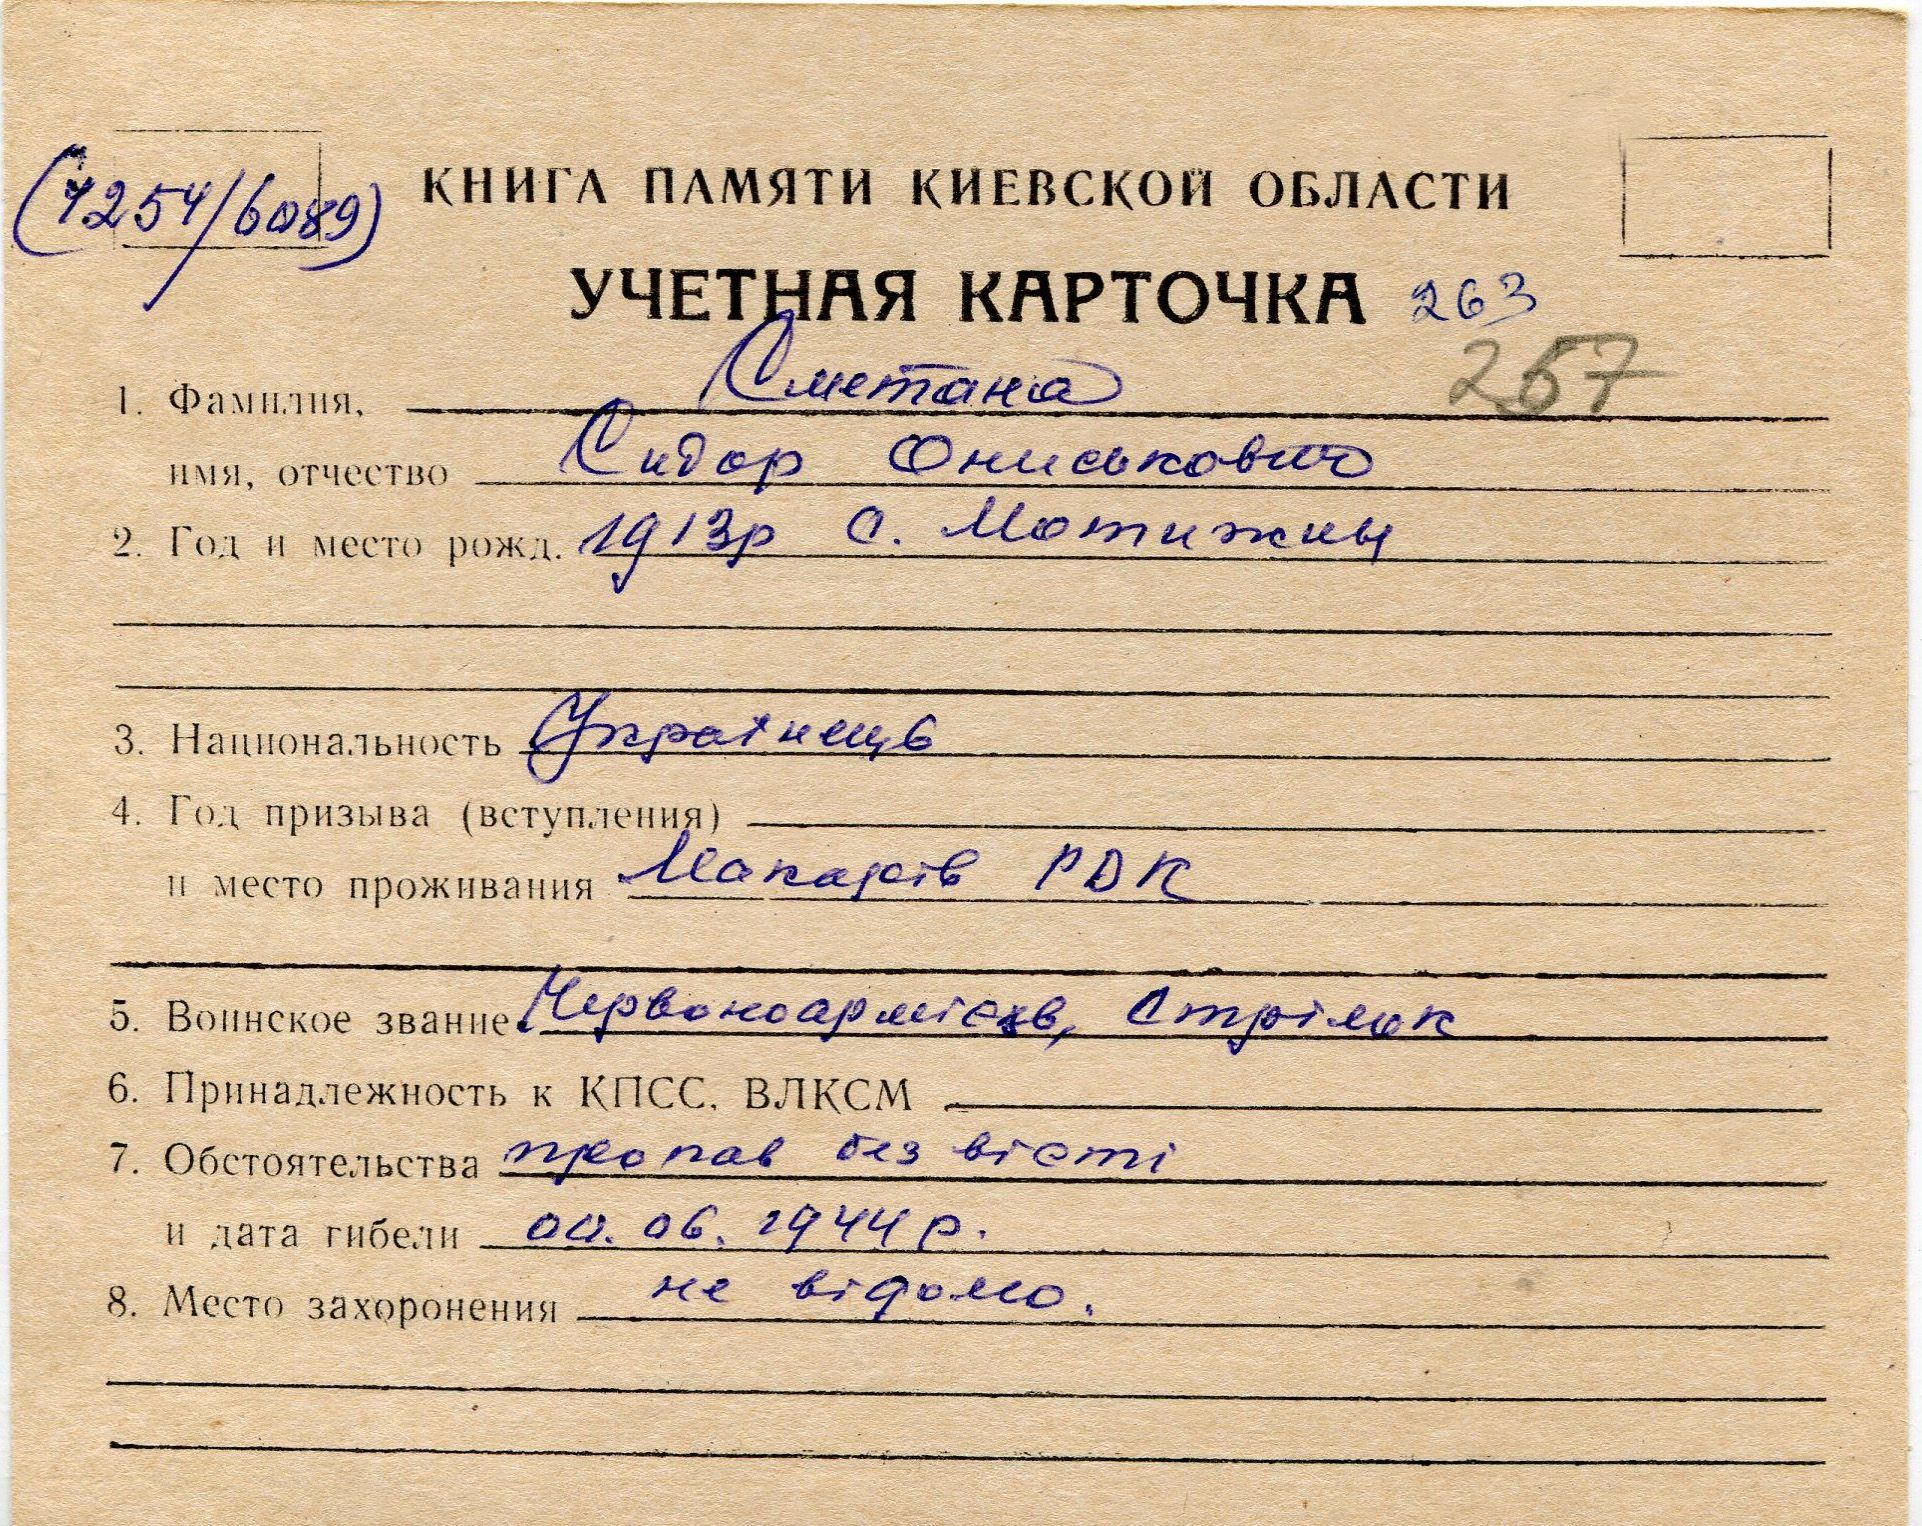 (7254/6089)
КНИГА ПАМЯТИ КИЕВСКОЙ ОБЛАСТИ
УЧЕТНАЯ КАРТОЧКА 263
267
1. Фамилия, Сметана
имя, отчество Сидор Ониськович
2. Год и место рожд. 1913р с. Мотижин
3. Национальность Українець
4. Год призыва (вступления)
и место проживания Макарів РВК
5. Воинское звание Червоноармієць, Стрілок
6. Принадлежность к КПСС, ВЛКСМ
7. Обстоятельства пропав без вісті
и дата гибели 00.06.1944 р.
8. Место захоронения не відомо.